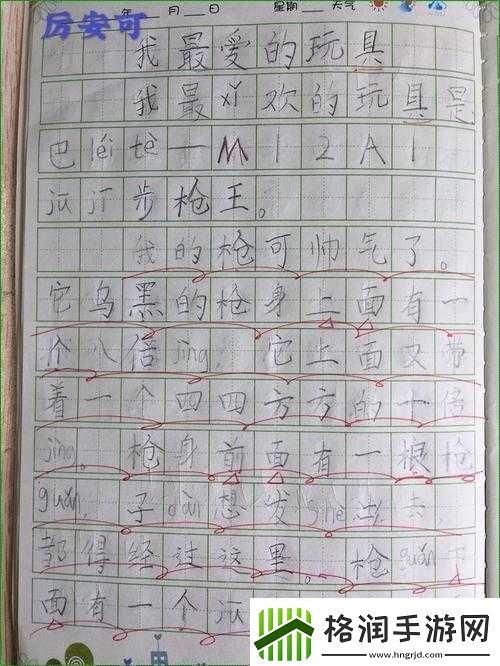 年 月 日 星期 天气
厉安可
我最爱的玩具
我最xǐ欢的玩具是
巴léi tè一M12A1
jū jī步枪王。
我的枪可帅气了。
它乌黑的枪身上面有一
个八倍jìng,它上面又带
着一个四四方方的十倍
jìng。枪身前面有一根枪
guǎn,子dàn想发shè出去,
都得经过这里。枪guǎn下
面有一个
格润手游网
www.hngrjd.com